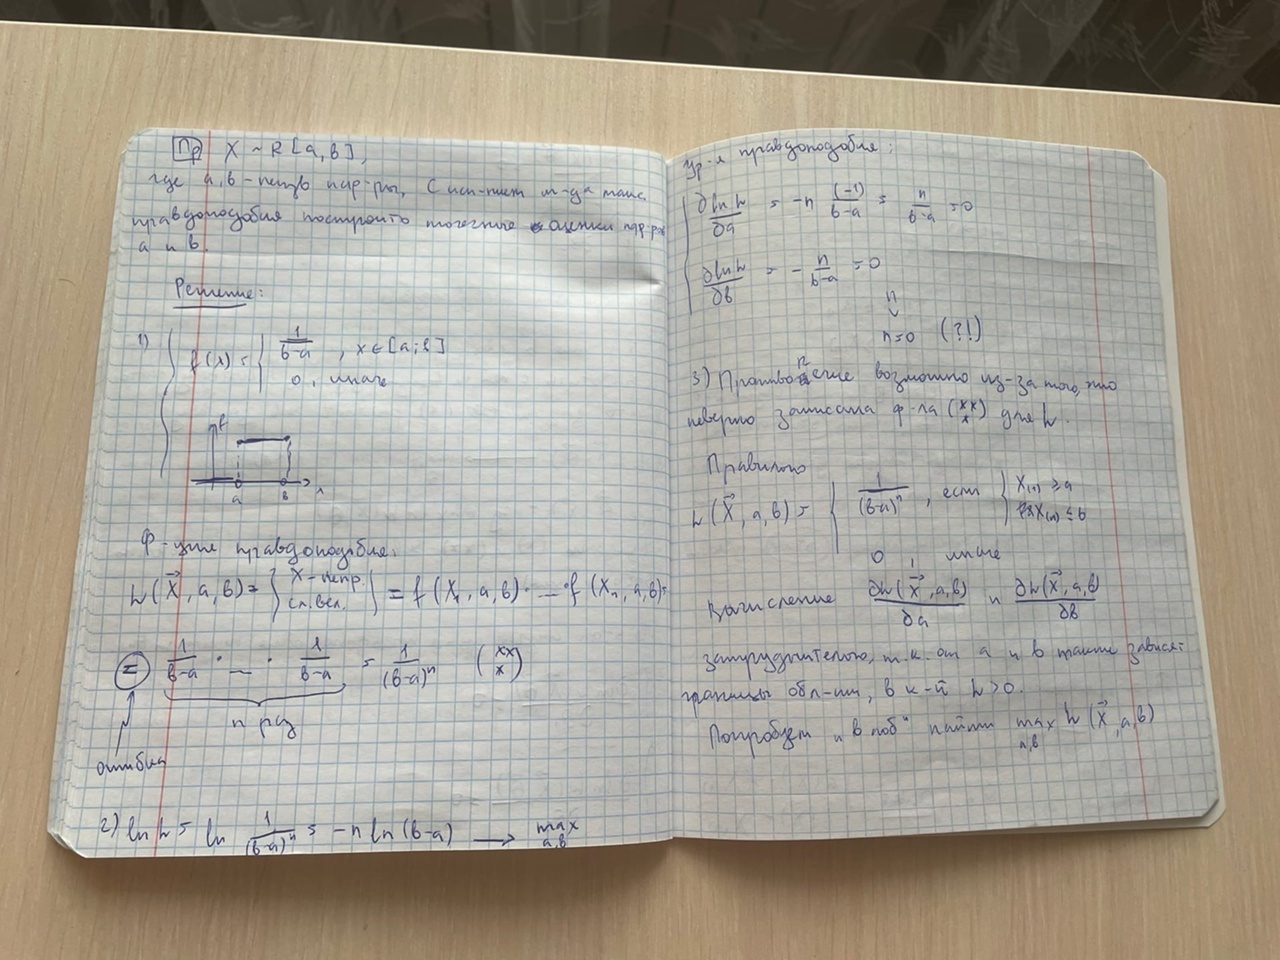 Пр X ~ R [a, b],
где a, b - неизв пар-ры, С исп-нием м-да макс.
правдоподобия построить точечные оценки пар-ров
a и b.
Решение:
1) f(x) = { 1/(b-a), x ∈ [a; b]
0, иначе
f
a b x
Ф-ция правдоподобия:
L(X⃗, a, b) = { X - непр. сл. вел. } = f(X₁, a, b) · ... · f(Xₙ, a, b) =
= 1/(b-a) · ... · 1/(b-a) = 1/(b-a)ⁿ (xx x)
n раз
ошибка
2) ln L = ln 1/(b-a)ⁿ = -n ln(b-a) → max a,b
Ур-я правдоподобия:
∂ln L/∂a = -n (-1)/(b-a) = n/(b-a) = 0
∂ln L/∂b = - n/(b-a) = 0
n=0 (?!)
3) Противоречие возможно из-за того, что
неверно записана ф-ла (xx x) для L.
Правильно
L(X⃗, a, b) = { 1/(b-a)ⁿ, если { X₍₁₎ ≥ a
X₍ₙ₎ ≤ b
0, иначе
Вычисление ∂L(X⃗, a, b)/∂a и ∂L(X⃗, a, b)/∂b
затруднительно, т.к. от a и b также зависят
границы обл-ти, в к-й L>0.
Попробуем "в лоб" найти max a,b L(X⃗, a, b)